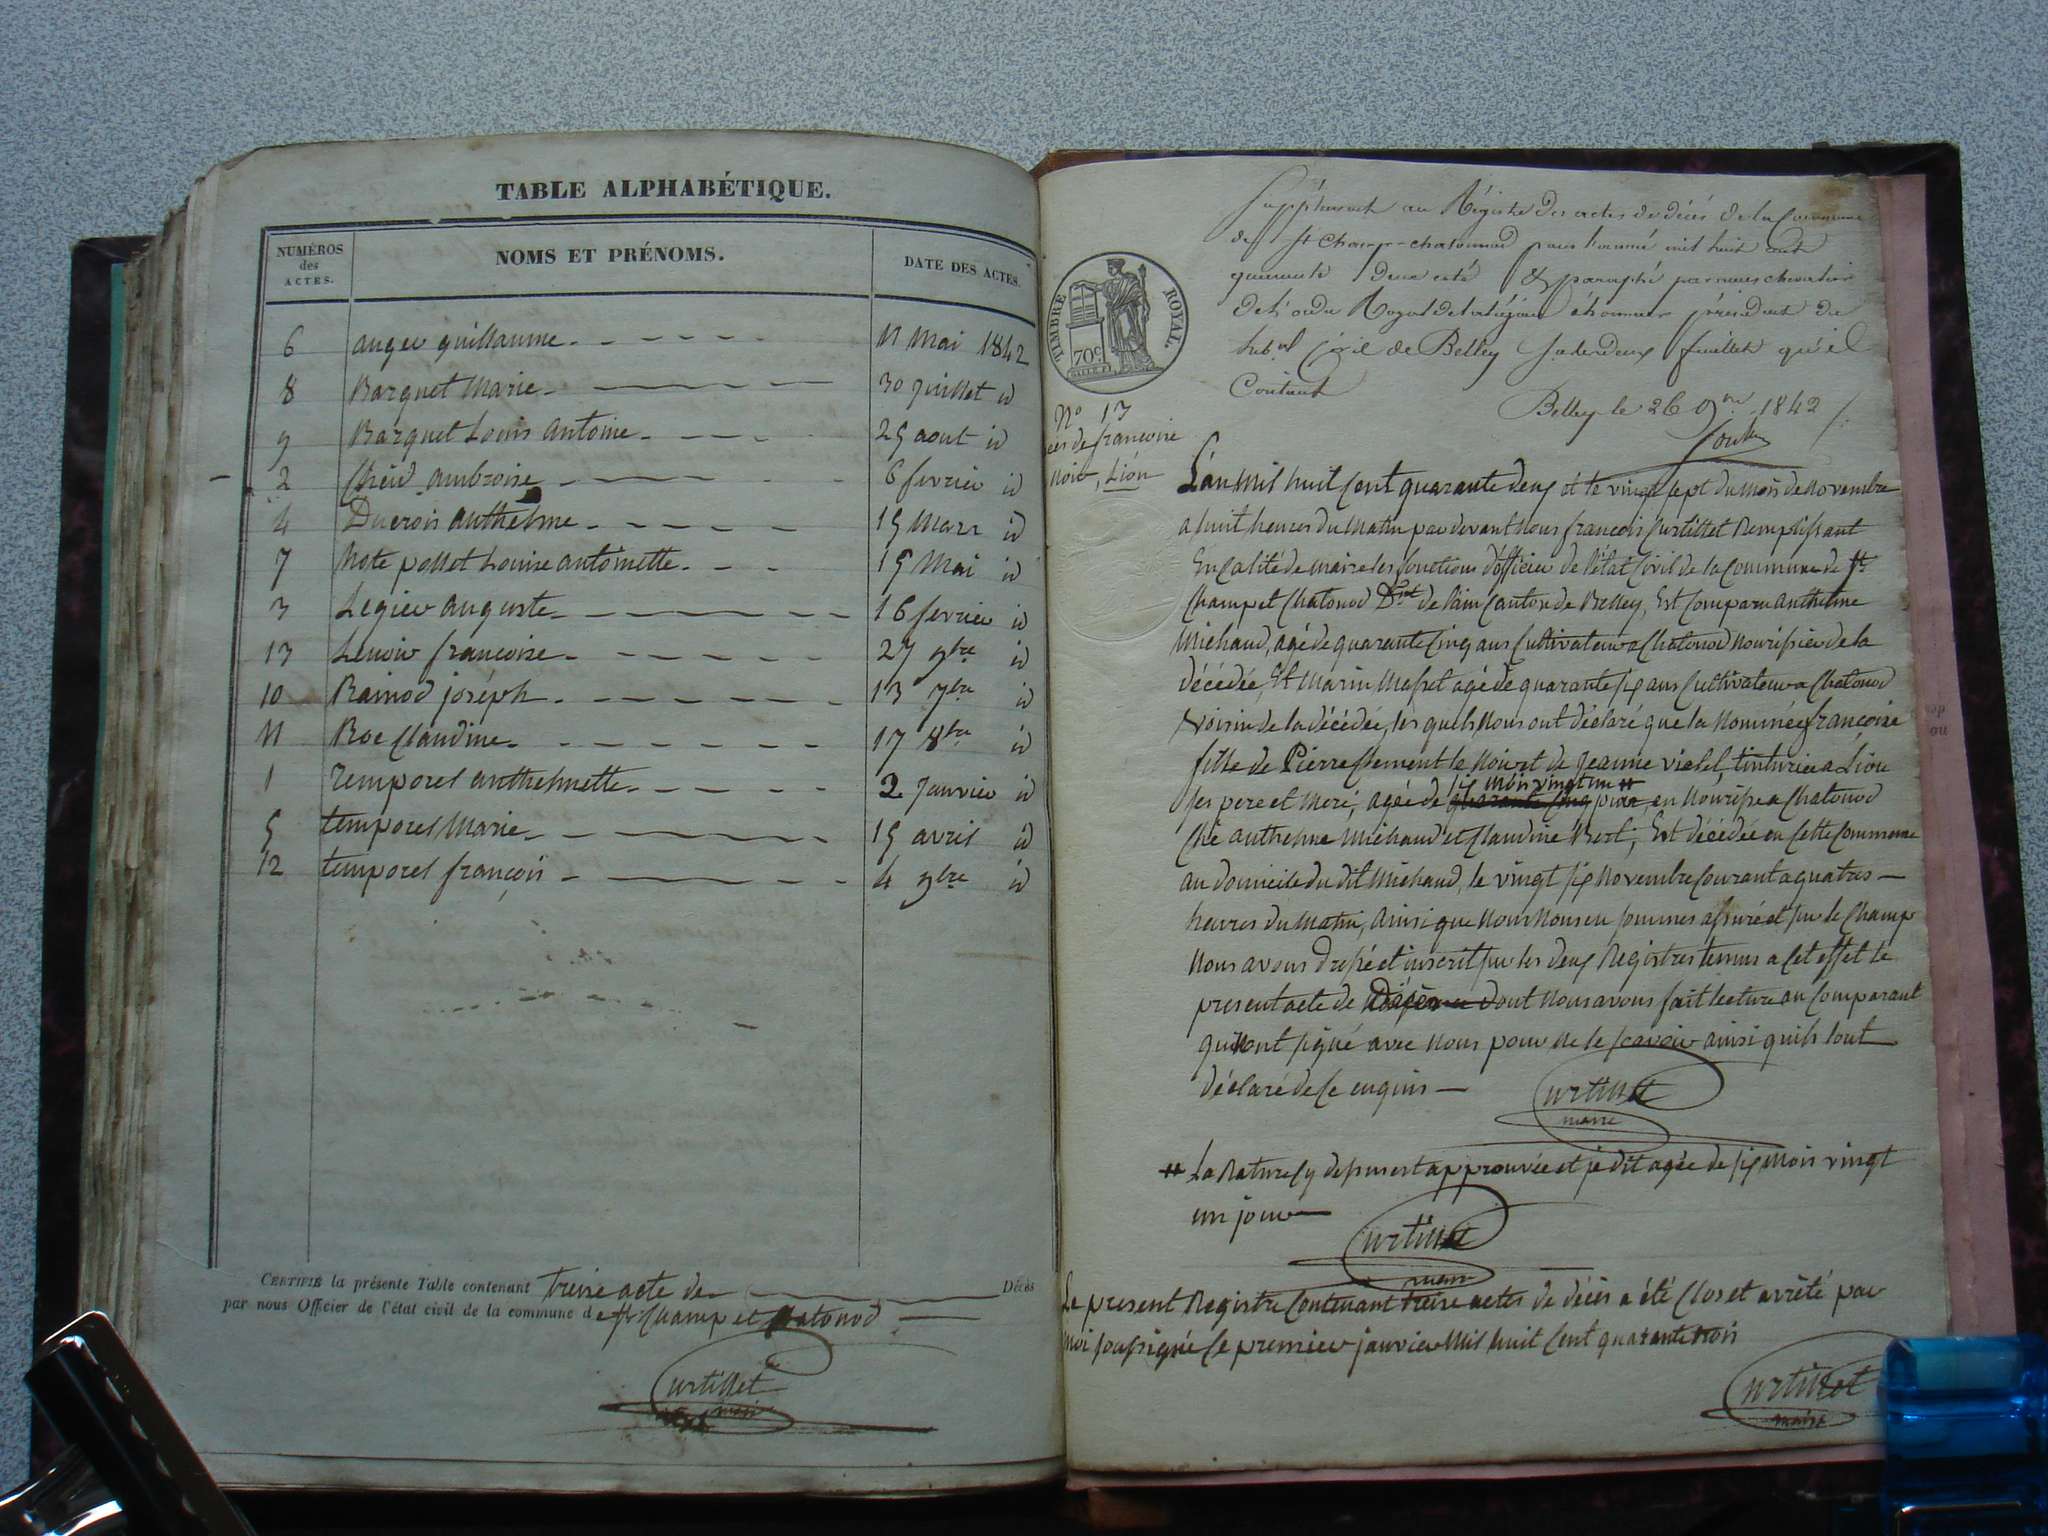 TABLE ALPHABÉTIQUE.
NUMÉROS des ACTES. NOMS ET PRÉNOMS. DATE DES ACTES.
6 auger guillaume 11 Mai 1842
8 Barquet Marie 30 juillet id
9 Barquet Louis antoine 25 aout id
2 ambroise 6 fevrier id
4 Ducrois anthelme 15 Mars id
7 Mote pollet Louise antoinette 15 Mai id
3 Legier auguste 16 fevrier id
13 Lenoir francoise 27 9bre id
10 Rainod joseph 13 7bre id
11 Roe Claudine 17 8bre id
1 Temporel anthelmette 2 Janvier id
5 temporel Marie 15 avril id
12 temporel françois 4 9bre id
CERTIFIÉ la présente Table contenant treise acte de Décès
par nous Officier de l'état civil de la commune de St Champ et Chatonod
Curtillet
maire
Supplément au Régistre des actes de décès de la Commune
de St Champ-chatonnod pour l'année mil huit cent
quarante deux coté & paraphé par nous chevalier
de l'ordre Royal de la légion d'honneur président du
tribal Civil de Belley sur les deux feuillets qu'il
Contient
Belley le 26 9bre 1842
TIMBRE ROYAL.
70c.
No 13
cès de francoise
noir, Lion
L'an Mil huit Cent quarante deux et le vingt sept du Mois de Novembre
a huit heures du Matin par devant Nous françois Curtillet Remplissant
En Calité de maire les fonctions d'officier de l'état Civil de la Commune de St
Champ et Chatonod Dpt de l'ain Canton de Belley, Est Comparu anthelme
Michaud, agé de quarante Cinq ans Cultivateur a Chatonod Nourissier de la
décédée, Et Marin Massel agé de quarante six ans Cultivateur a Chatonod
Voisin de la décédée, les quels Nous ont déclaré que la Nommée francoise
fille de Pierre Clement le Noir et de Jeanne vialet, tinturier a Lion
six Mois vingt un #
ses pere et Meré, agée de quarante Cinq jour, en Nourisse a Chatonod
Ché anthelme Michaud et Claudine Berli, Est décédée en Cette Commune
au domicile du dit Michaud, le vingt six Novembre Courant a quatres
heures du Matin, ainsi que Nous Nous en sommes assuré et sur le Champ
Nous avons dressé et inscrit sur les deux Registres tenus a Cet effet le
present acte de dont Nous avons fait lecture au Comparant
qui Nont signé avec Nous pour Ne le scavoir ainsi quils lont
déclaré de Ce enquis
Curtillet
maire
# La Rature Cy dessus est approuvée et se dit agée de six Mois vingt
un jour
Curtillet
maire
Le present Registre Contenant treise actes de décès a été Clos et arrêté par
Moi soussigné Ce premier janvier Mil huit Cent quarante trois
Curtillet
maire